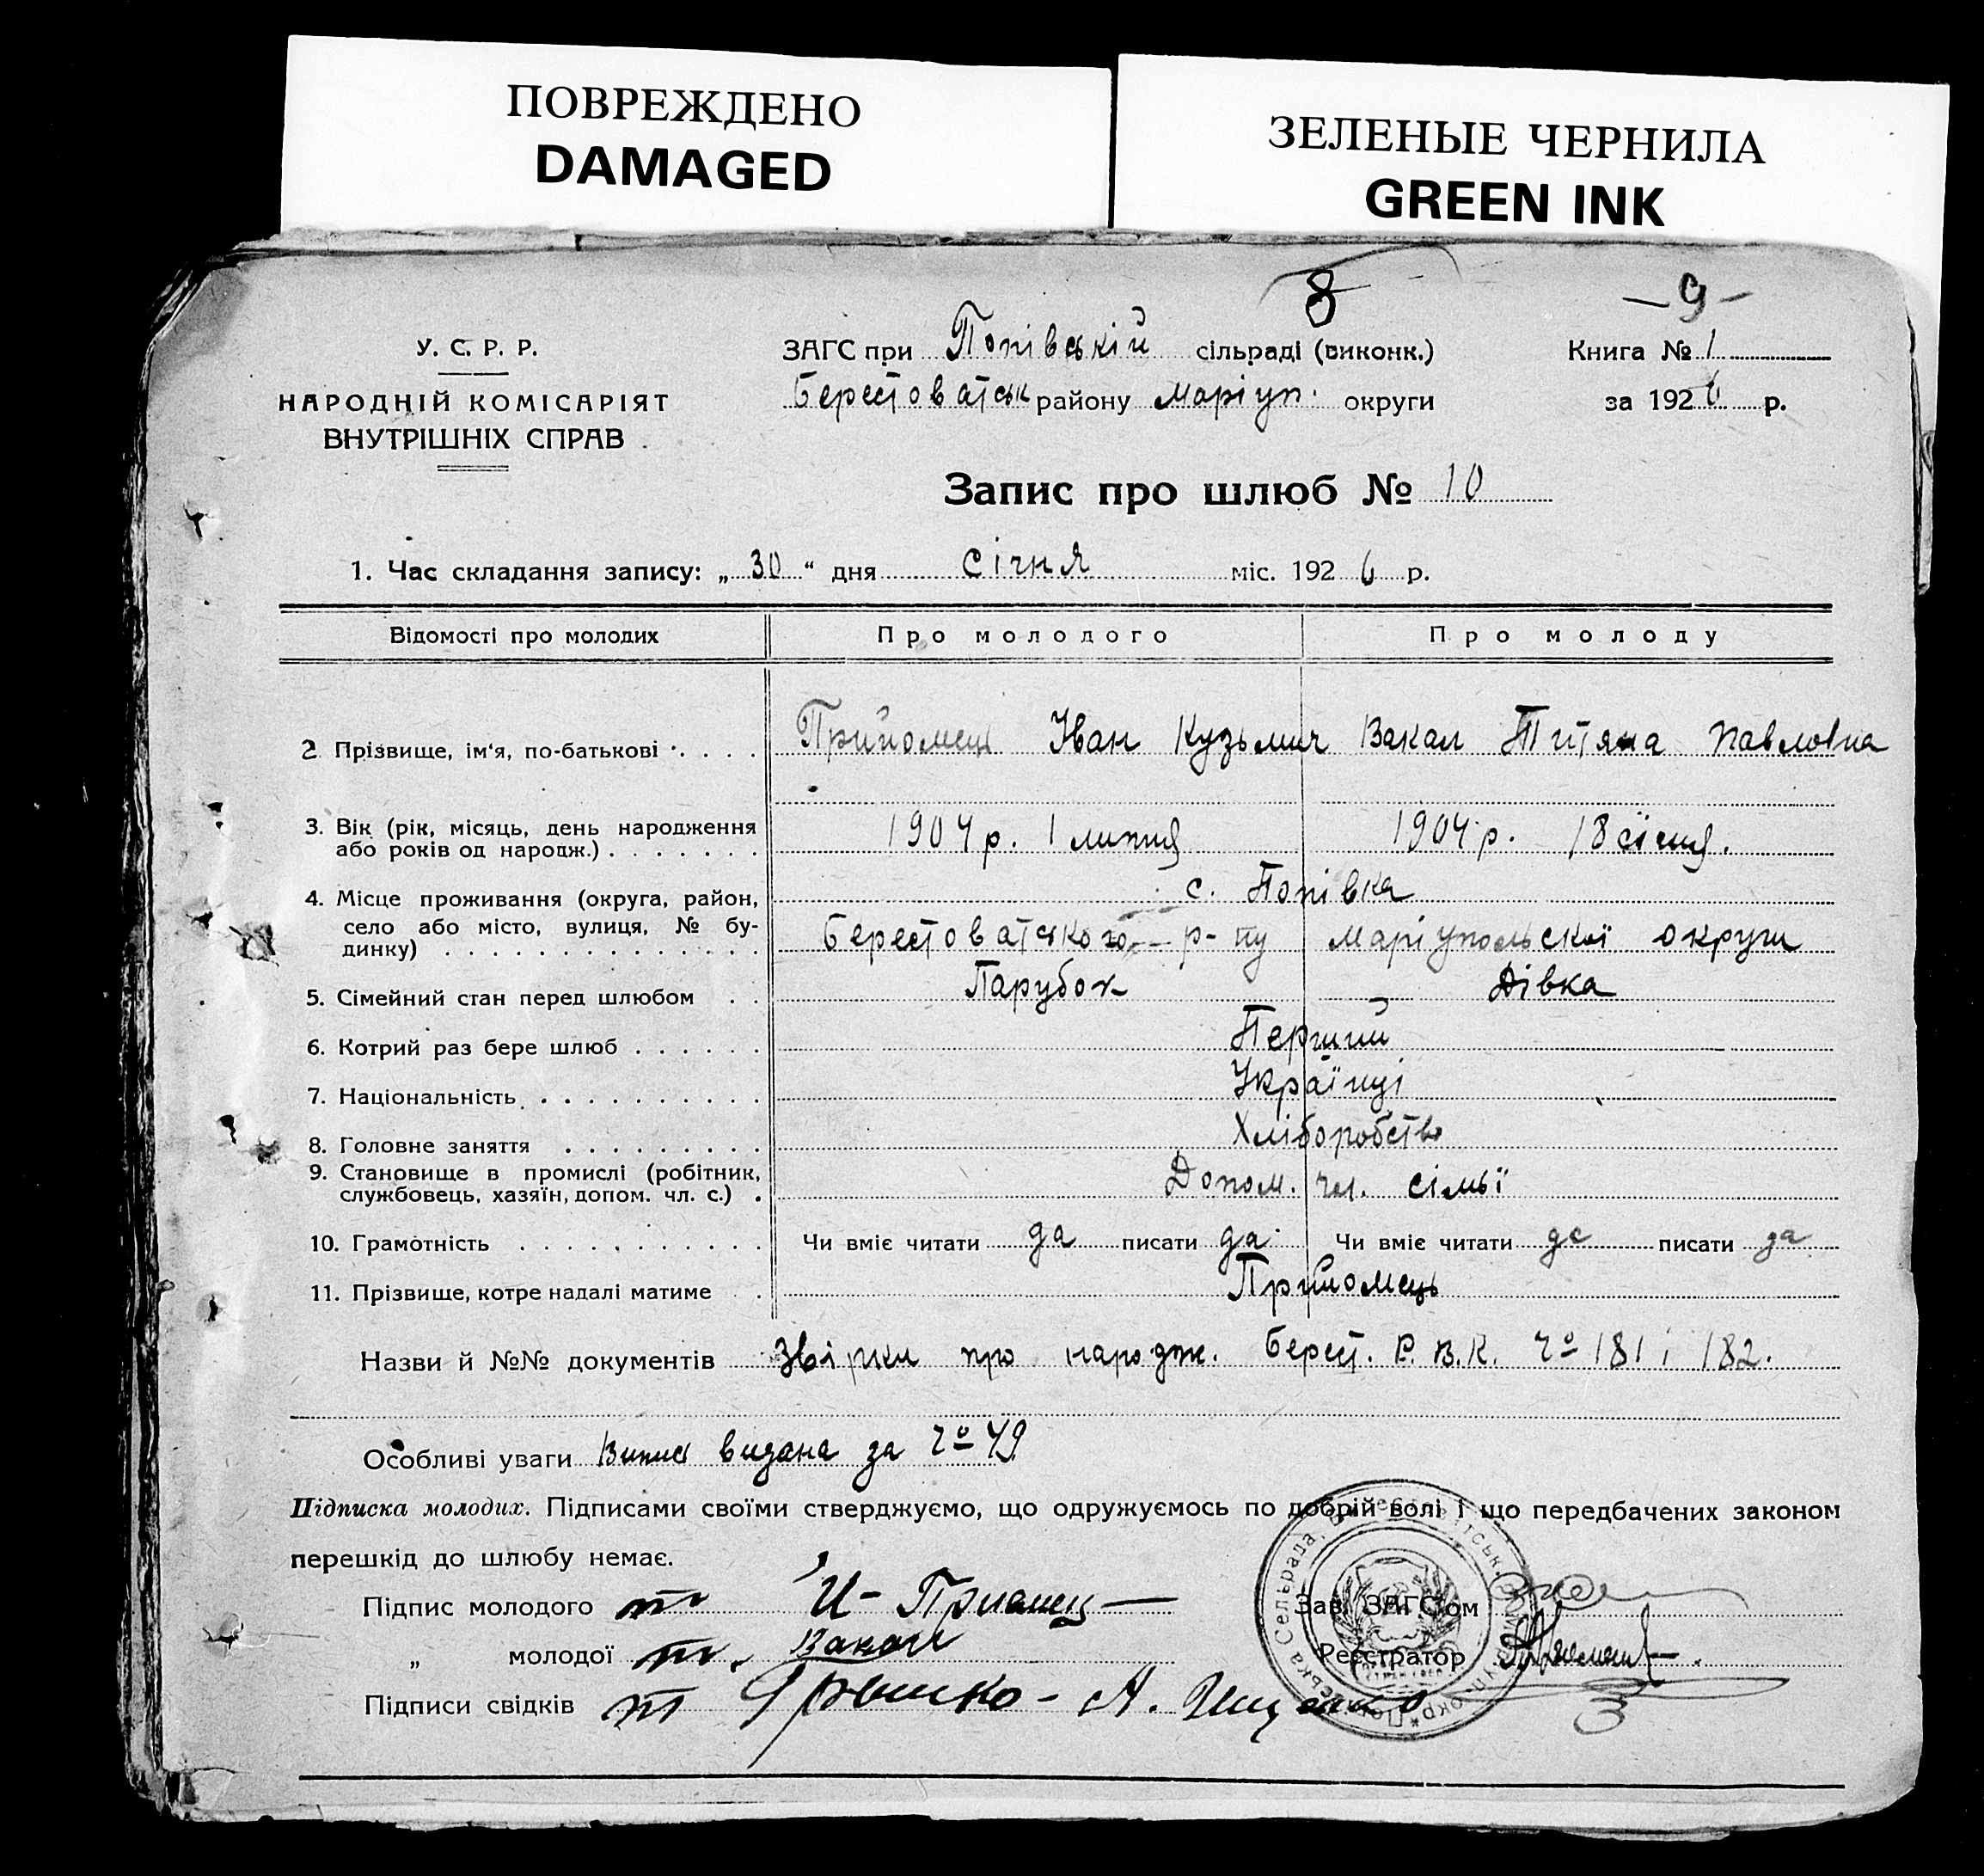 ПОВРЕЖДЕНО
DAMAGED
ЗЕЛЕНЫЕ ЧЕРНИЛА
GREEN INK
8
— 9 -
У. С. Р. Р.
НАРОДНІЙ КОМІСАРІЯТ
ВНУТРІШНІХ СПРАВ
ЗАГС при Попівській сільраді (виконк.)
Берестоватськ району Маріуп. округи
Книга № 1
за 1926 р.
Запис про шлюб № 10
1. Час складання запису: „ 30 “ дня січня міс. 1926 р.
Відомості про молодих Про молодого Про молоду
2 Прізвище, ім'я, по-батькові Прийомець Іван Кузьмич Вакал Тит яна Павловна
3. Вік (рік, місяць, день народження
або років од народж.) 1904 р. 1 липня 1904 р. 18 січня.
4. Місце проживання (округа, район,
село або місто, вулиця, № бу-
динку)
с. Попівка
Берестоватського р-ну Маріупольскої округи
5. Сімейний стан перед шлюбом Парубок Дівка
6. Котрий раз бере шлюб Перший
7. Національність Українці
8. Головне заняття Хліборобство
9. Становище в промислі (робітник,
службовець, хазяїн, допом. чл. с.) Допом. чл. сімьї
10. Грамотність Чи вміє читати да писати да Чи вміє читати да писати да
11. Прізвище, котре надалі матиме Прийомець
Назви й №№ документів Звірки про народж. Берест. Р. В. К. Чо 181 і 182.
Особливі уваги Випис видана за Чо 49
Підписка молодих. Підписами своїми стверджуємо, що одружуємось по добрій волі і що передбачених законом
перешкід до шлюбу немає.
Підпис молодого И- Приомец
„ молодої Вакал
Зав. ЗАГС'ом
Реєстратор
Підписи свідків А.